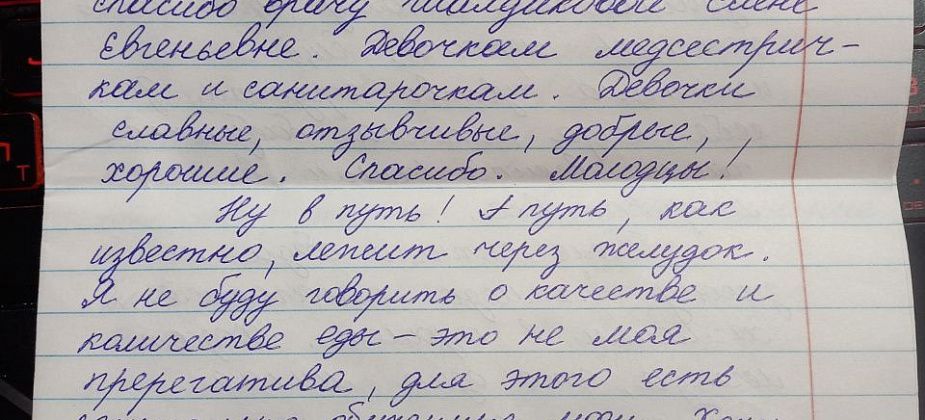 спасибо врачу Елене
Евгеньевне. Девочкам медсестрич-
кам и санитарочкам. Девочки
славные, отзывчивые, добрые,
хорошие. Спасибо. Молодцы!
Ну в путь! А путь, как
известно, лежит через желудок.
Я не буду говорить о качестве и
количестве еды - это не моя
пререгатива, для этого есть